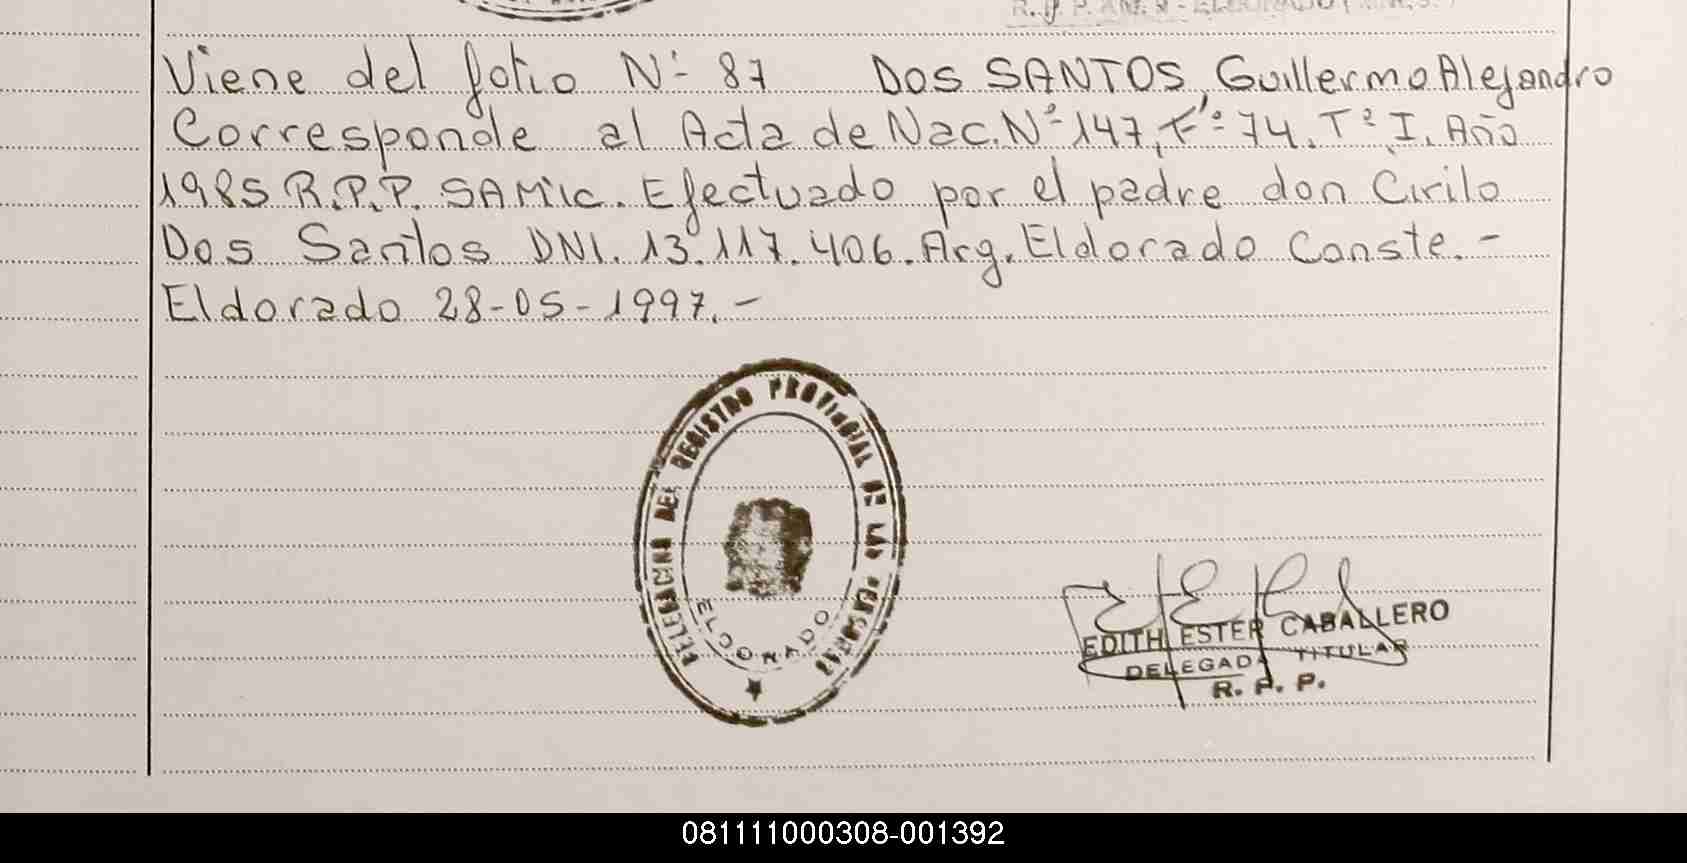 Viene del folio Nº 87 DOS SANTOS, Guillermo Alejandro
Corresponde al Acta de Nac. Nº 147, Fº 74. Tº I. Año
1985 R.P.P. SAMIC. Efectuado por el padre don Cirilo
Dos Santos DNI. 13.117.406. Arg. Eldorado Conste.-
Eldorado 28-05-1997.-
DELEGACION DEL REGISTRO PROVINCIAL DE LAS PERSONAS
ELDORADO
EDITH ESTER CABALLERO
DELEGADA TITULAR
R. P. P.
081111000308-001392